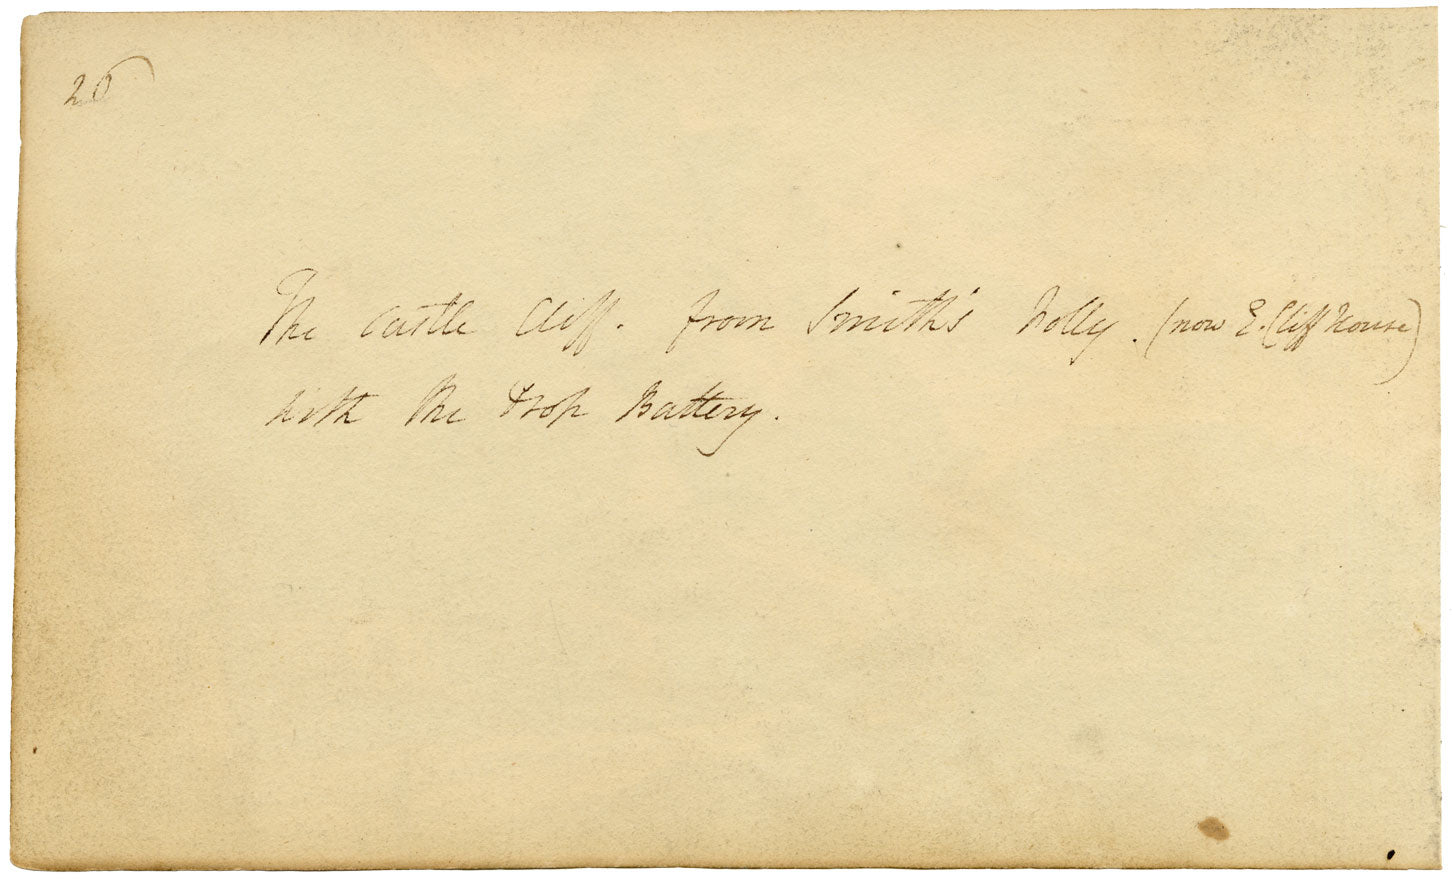 26
The Castle Cliff. from Smith's Folly. (now E. Cliff House)
with the Battery.